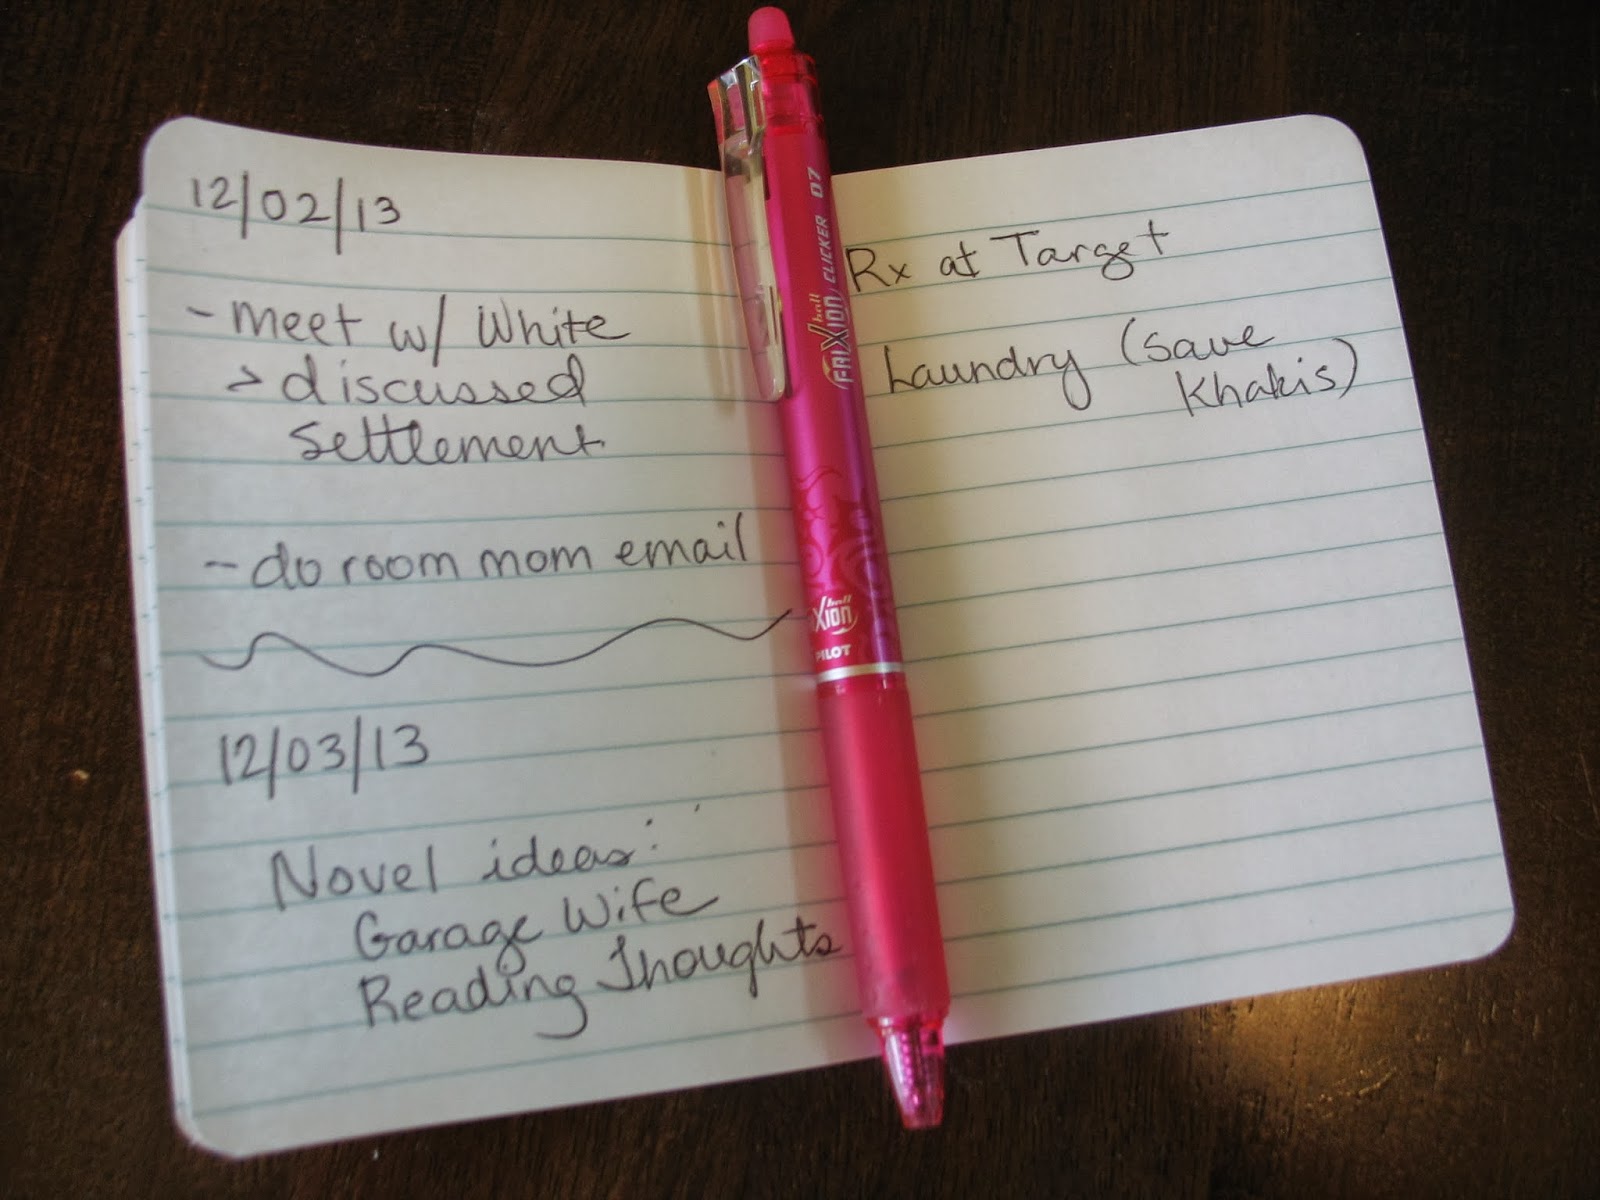 12/02/13
- meet w/ White
> discussed
settlement
- do room mom email
12/03/13
Novel ideas:
Garage Wife
Reading Thoughts
Rx at Target
Laundry (save
Khakis)
FRIXION ball CLICKER 07
Xion ball
PILOT